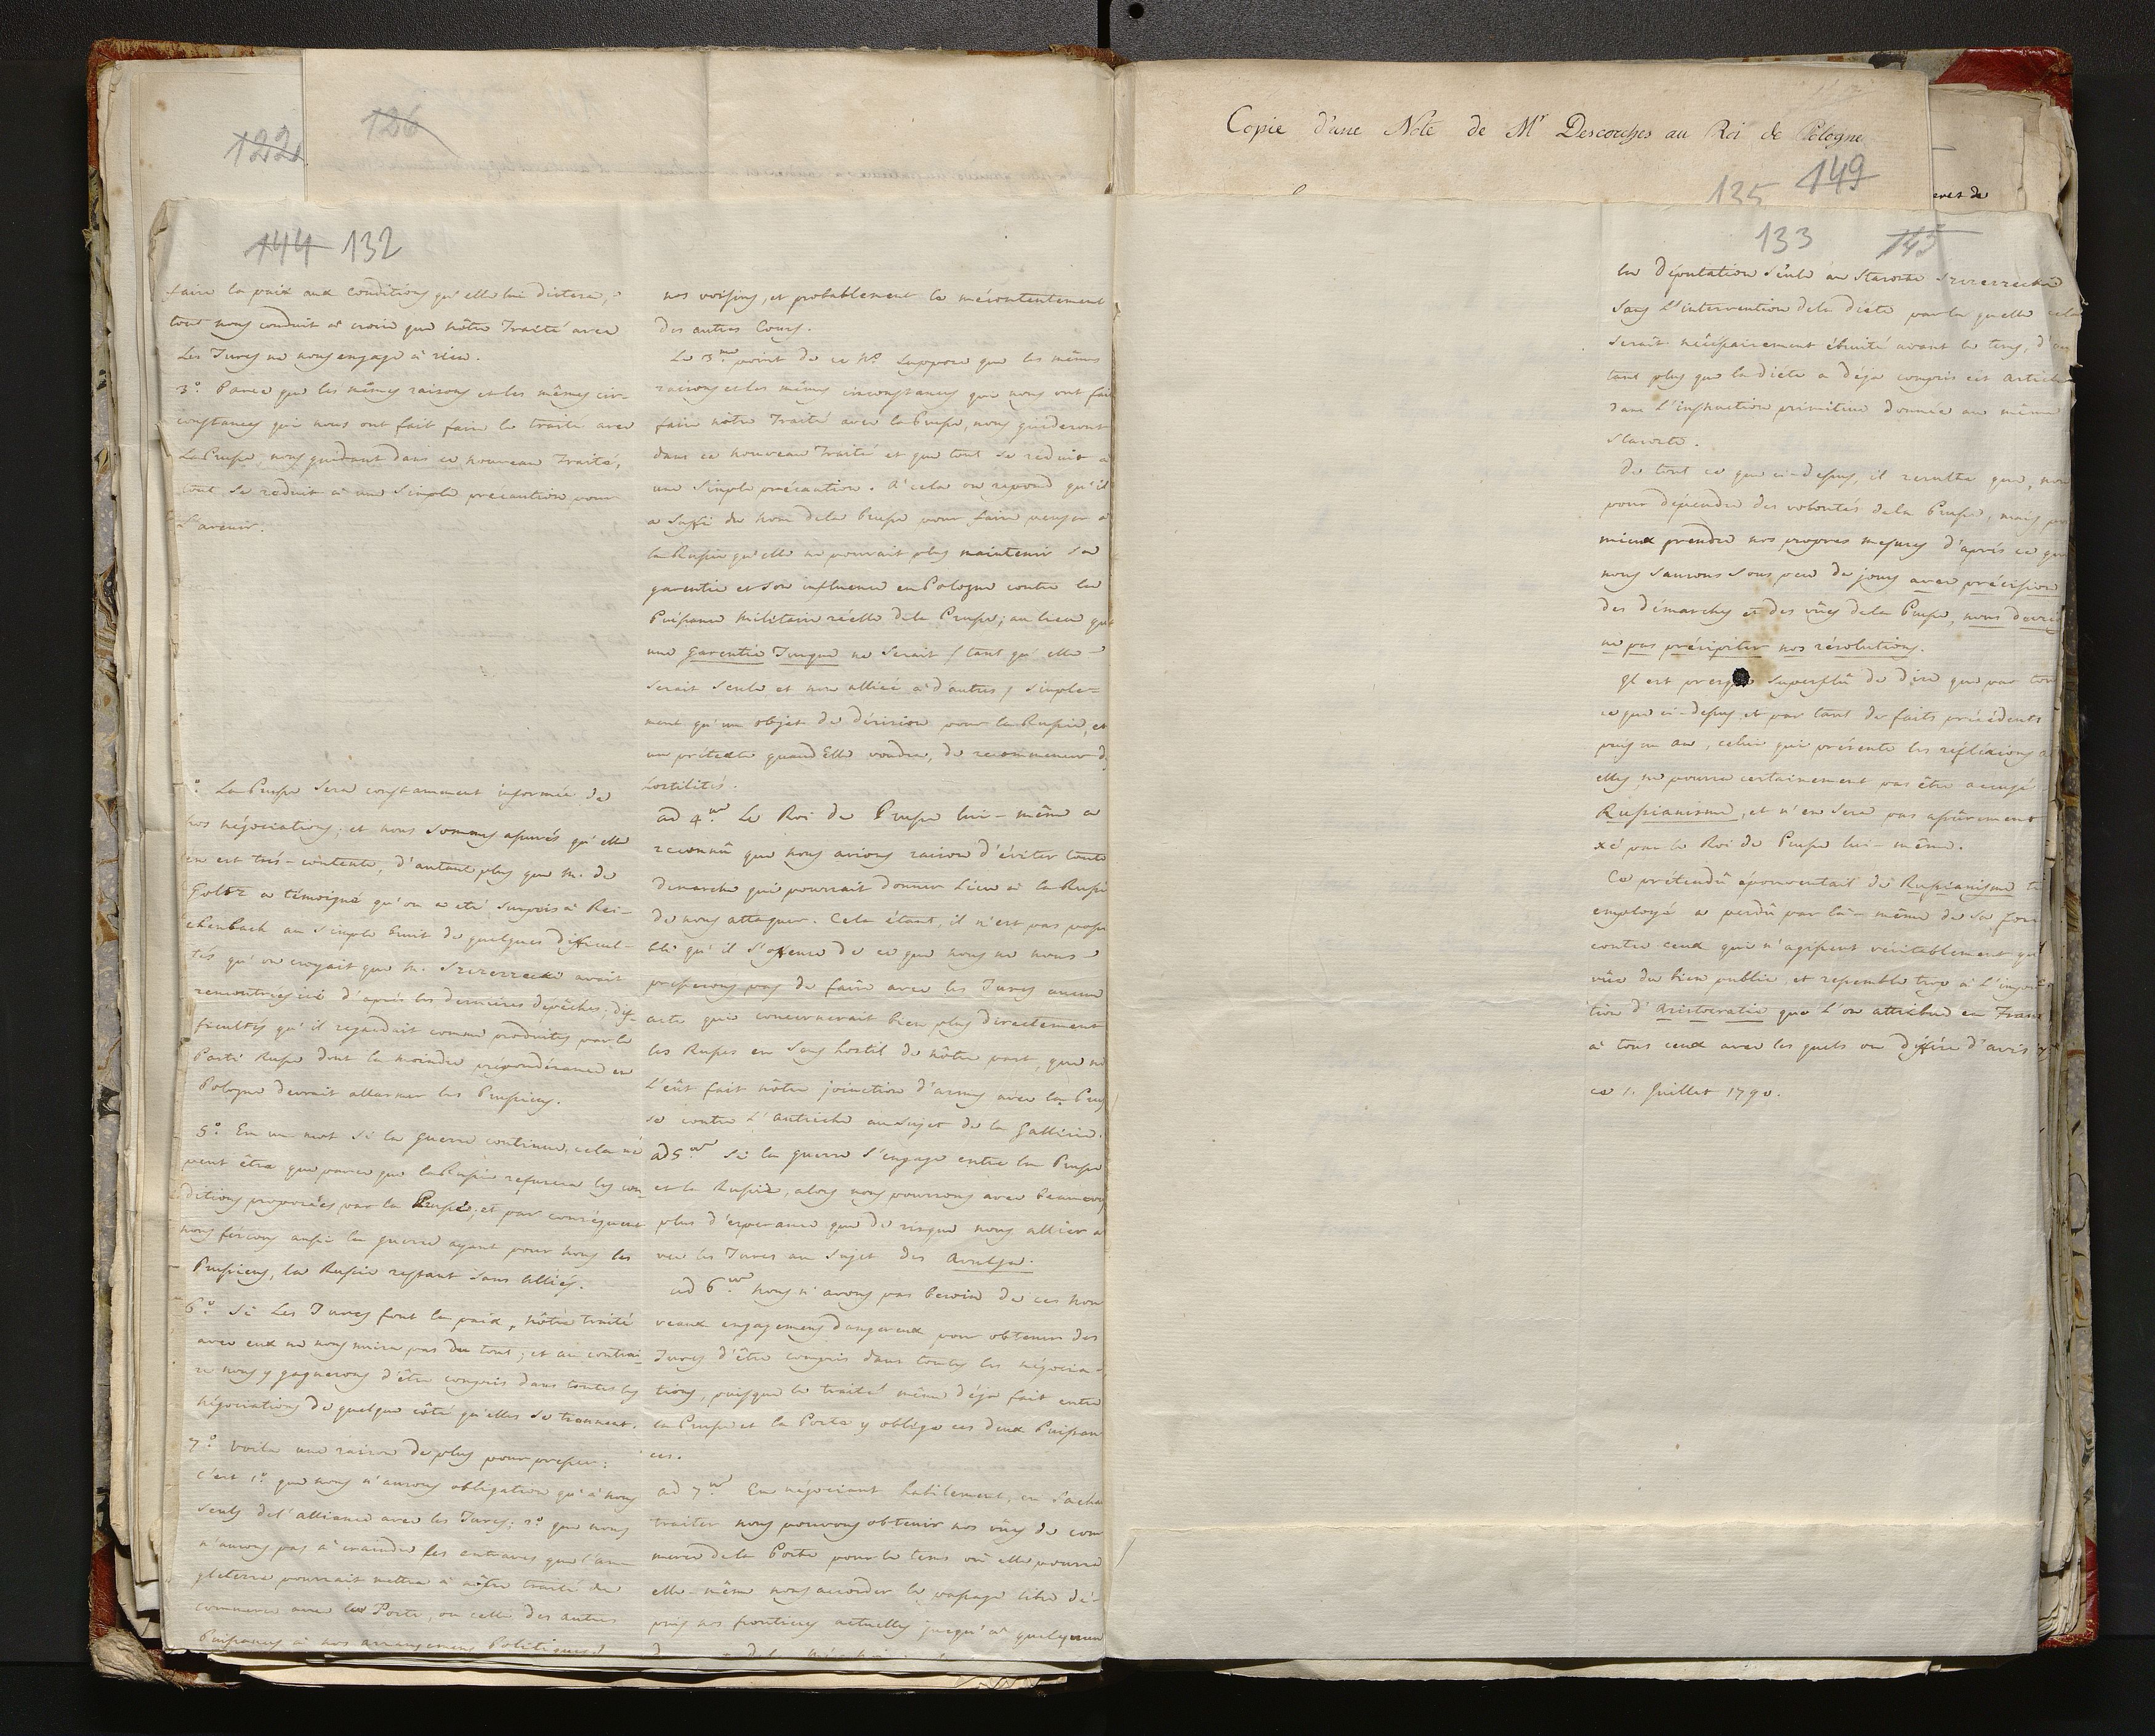 122
126
144 132
faire la paix aux conditions qu'elle lui dictera,
tout nous conduit à croire que nôtre Traité avec
Les Turcs ne nous engage à rien.
3.° Parce que les mêmes raisons et les mêmes cir-
constances qui nous ont fait faire le traité avec
La Prusse, nous guidant dans ce nouveau Traité,
tout se reduit à une simple précaution pour
L'avenir.
° La Prusse sera constamment informée de
nos négociations; et nous sommes assurés qu'elle
en est très-contente, d'autant plus que M. de
Goltz a témoigné qu'on a été surpris à Rei-
chenbach au simple bruit de quelques difficul-
tés qu'on croyait que M. avait
rencontrées ici d'après les dernières dépêches, dif-
ficultés qu'il regardait comme produites par le
Parti Russe dont la moindre prépondérance en
Pologne devrait allarmer les Prussiens.
5.° En un mot si la guerre continue, cela ne
peut être que parce que la Russie refusera les con-
ditions proposées par la Prusse; et par conséquent
nous ferions aussi la guerre ayant pour nous les
Prussiens, la Russie restant sans alliés.
6.° Si Les Turcs font la paix, nôtre traité
avec eux ne nous nuira pas du tout; et au contrai-
re nous y gagnerons d'être compris dans toutes les
négociations de quelque côté qu'elles se tournent.
7.° Voila une raison de plus pour presser:
c'est 1.° que nous n'aurons obligation qu'à nous
seuls de l'alliance avec les Turcs; 2.° que nous
n'aurons pas à craindre les entraves que l'an-
gleterre pourrait mettre à nôtre traité de
commerce avec la Porte, ou celle des autres
Puissances à nos arrangemens Politiques
nos voisins, et probablement le mécontentement
des autres Cours.
Le 3.me point de ce N.° suppose que les mêmes
raisons et les mêmes circonstances que nous ont fait
faire nôtre Traité avec la Prusse, nous guideront
dans ce nouveau Traité et que tout se reduit à
une simple précaution. à cela on repond qu'il
a suffi du nom de la Prusse pour faire penser à
la Russie qu'elle ne pourrait plus maintenir sa
garentie et son influence en Pologne contre la
Puissance militaire réelle de la Prusse; au lieu que
une garentie Turque ne serait (tant qu'elle
serait seule et non alliée à d'autres) simple-
ment qu'un objet de dérision pour la Russie, et
un prétexte quand Elle voudra, de recommencer d
hostilités.
ad 4.um Le Roi de Prusse lui-même a
reconnû que nous avions raison d'éviter toute
demarche qui pourrait donner Lieu à la Russie
de nous attaquer. Cela étant, il n'est pas possi
ble qu'il s'offense de ce que nous ne nous
pressons pas de faire avec les Turcs aucun
acte qui concernerait bien plus directement
les Russes en sens hostil de nôtre part, que ne
L'eût fait nôtre jonction d'armes avec la Prus
se contre L'autriche au sujet de la Gallicie.
ad 5.um Si la guerre s'engage entre la Prusse
et la Russie, alors nous pourrons avec beaucoup
plus d'esperance que de risque nous allier a
vec les Turcs au sujet des avulsa.
ad 6.um Nous n'avons pas besoin de ces nou
veaux engagemens dangereux pour obtenir des
Turcs d'être compris dans toutes les négocia-
tions, puisque le traité même déja fait entre
la Prusse et la Porte y oblige ces deux Puissan
ces.
ad 7.um En negociant habilement, en sacha
traiter nous pouvons obtenir nos vûes de com
merce de la Porte pour le tems où elle pourra
elle-même nous accorder le passage libre de-
puis nos frontieres actuelles jusqu'à quelqu'un
Copie d'une Note de Mr Descorches au Roi de Pologne
149
135
eves de
133 145
la députation seule au Staroste
sans L'intervention de la diete par la quelle cela
serait nécessairement ébruité avant le tems, d'au
tant plus que la diete a déja compris cet article
dans L'instruction primitive donnée au même
Staroste.
De tout ce que ci-dessus, il resulte que, non
pour dépendre des volontés de la Prusse, mais pr
mieux prendre nos propres mesures d'après ce que
nous saurons sous peu de jours avec précision
des démarches et des vûes de la Prusse, nous devrio
ne pas précipiter nos résolutions.
Il est presque superflû de dire que par tout
ce que ci-dessus et par tant de faits précédents
puis un an, celui qui présente les réfléxions
elles, ne pourra certainement pas être accusé
Russianisme, et n'en sera pas assûrement
xé par le Roi de Prusse lui-même.
Ce prétendû épouventail de Russianisme
employé a perdû par là-même de sa for
contre ceux qui n'agissent véritablement qu'
vûe du bien public, et ressemble trop à l'imputa
tion d'Aristocratie que l'on attribue en Fran
à tous ceux avec les quels on diffère d'avis
ce 1. Juillet 1790.